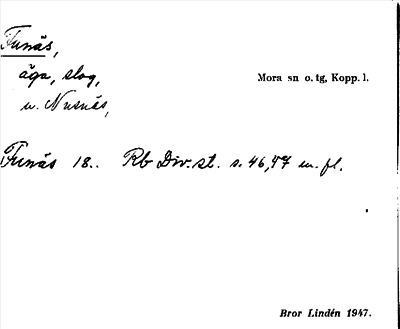 Funäs,
äga, slog,
Mora sn o. tg, Kopp. l.
u. Nusnäs,
Funäs 18.. Rb Div. st. s. 46, 47 m. fl.
Bror Lindén 1947.